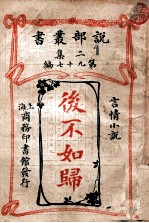 說部叢書
第二集
九十七編
言情小說
後不如歸
上海商務印書館發行